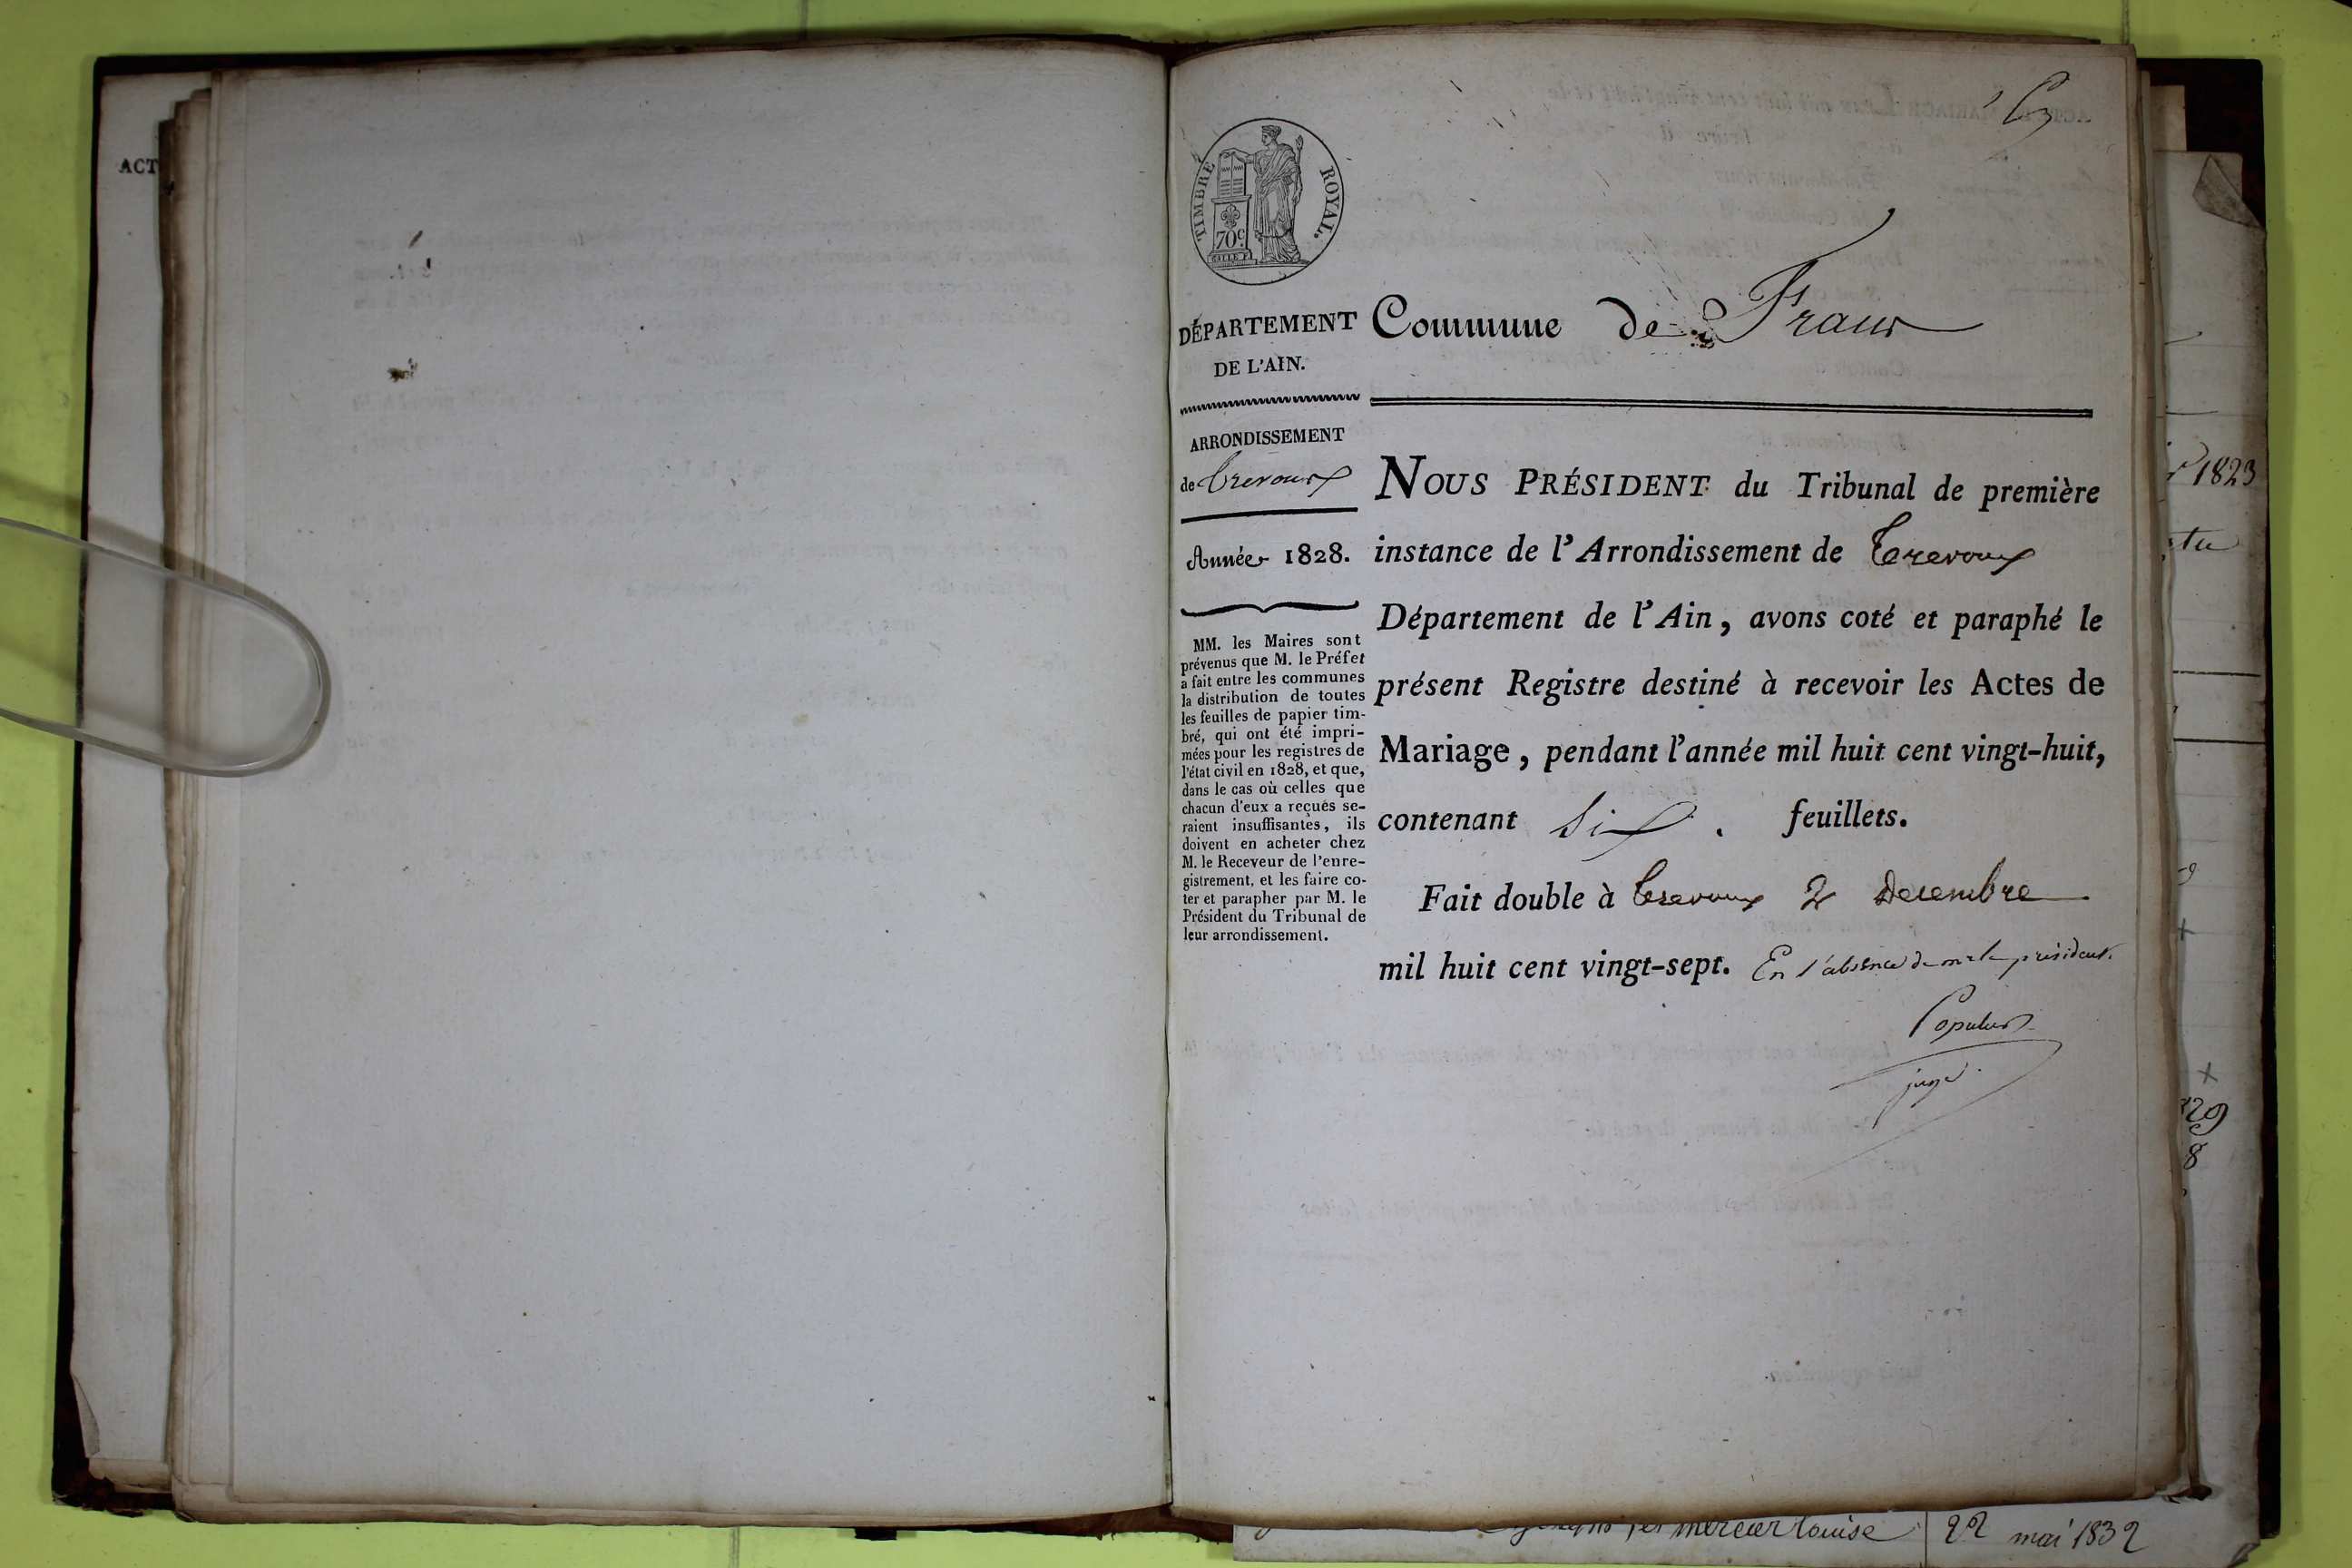 ACT
TIMBRE ROYAL.
70c.
DÉPARTEMENT
DE L'AIN.
Commune de Frans
ARRONDISSEMENT
de Trevoux
Année 1828.
MM. les Maires sont
prévenus que M. le Préfet
a fait entre les communes
la distribution de toutes
les feuilles de papier tim-
bré, qui ont été impri-
mées pour les registres de
l'état civil en 1828, et que,
dans le cas où celles que
chacun d'eux a reçues se-
raient insuffisantes, ils
doivent en acheter chez
M. le Receveur de l'enre-
gistrement, et les faire co-
ter et parapher par M. le
Président du Tribunal de
leur arrondissement.
NOUS PRÉSIDENT du Tribunal de première
instance de l'Arrondissement de Trevoux
Département de l'Ain, avons coté et paraphé le
présent Registre destiné à recevoir les Actes de
Mariage, pendant l'année mil huit cent vingt-huit,
contenant Six . feuillets.
Fait double à Trevoux 2 Decembre
mil huit cent vingt-sept. En l'absence de mr le président.
Populus
juge.
1823
29
8
mercier Louise 22 mai 1832